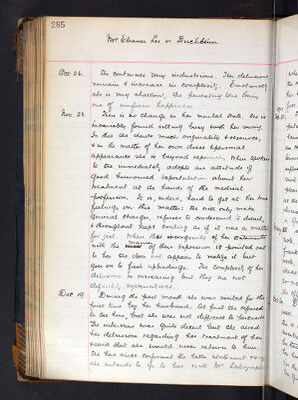 285
Mrs Eleanor Lee or Buchbinn
Oct 26. She continues very industrious. Her delusions
remain & increase in complexity. Emotionally
she is very shallow, the prevailing tone being
one of
happiness.
Nov. 22. There is no change in her mental state. She is
invariably found sitting busy with her sewing.
In this she shows much originality & resource,
& in the matter of her own dress & personal
appearance she is beyond reproach. When spoken
to she immediately adopts an attitude of
good humoured expostulation about her
treatment at the hands of the medical
profession. It is, indeed, hard to get at her true
feelings on this matter; she will only make
general charges, refuses to condescend to detail,
& throughout keeps smiling as if it was a matter
for jest. When the incongruity of the
with the manner of their expression is pointed out
to her she does not appear to realise it but
goes on to fresh upbraidings. The complexity of her
delusions is increasing but they are not
definitely systematised.
Dec 19 During the past month she was visited for the
first time by her husband. At first she refused
to see him, but she was not difficult to persuade.
The interview was quite decent but she aired
her delusions regarding her treatment of her
& said that she would never return to him.
She has since confirmed the latter statement & says
she intends to go to live with Mr Dalrymple